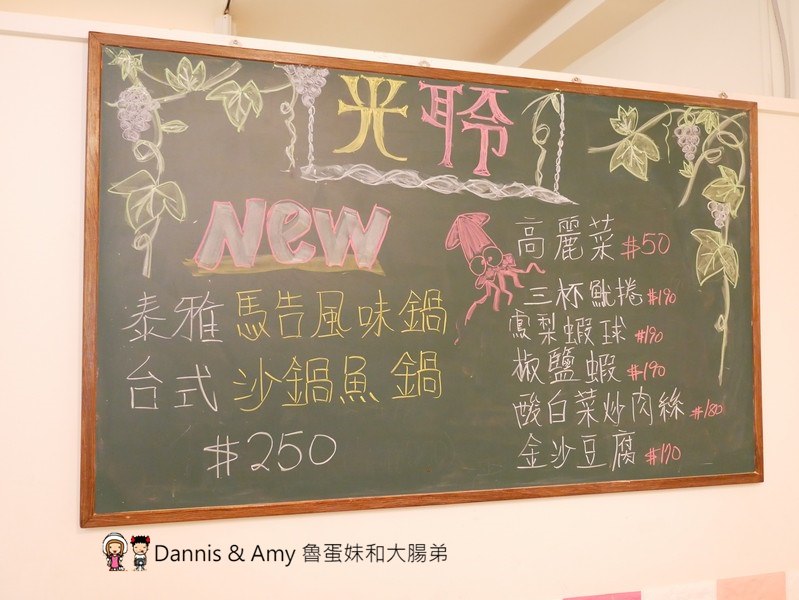 光聆
New
泰雅 馬告風味鍋
台式 沙鍋魚鍋
$250
高麗菜 $50
三杯魷捲 $190
鳳梨蝦球 $190
椒鹽蝦 $190
酸白菜炒肉絲 $180
金沙豆腐 $170
Dannis & Amy 魯蛋妹和大腸弟